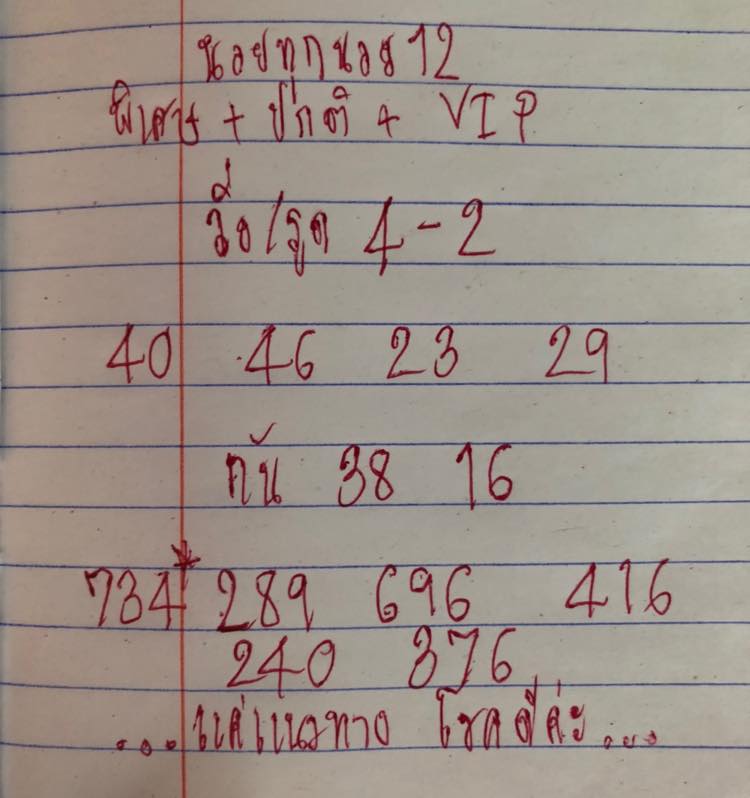 นอยทุกนอย 12
พิเศษ + ปกติ + VIP
วิ่ง/รูด 4-2
40 46 23 29
กัน 38 16
734* 289 696 416
240 376
...แค่แนวทาง โชคดีค่ะ...